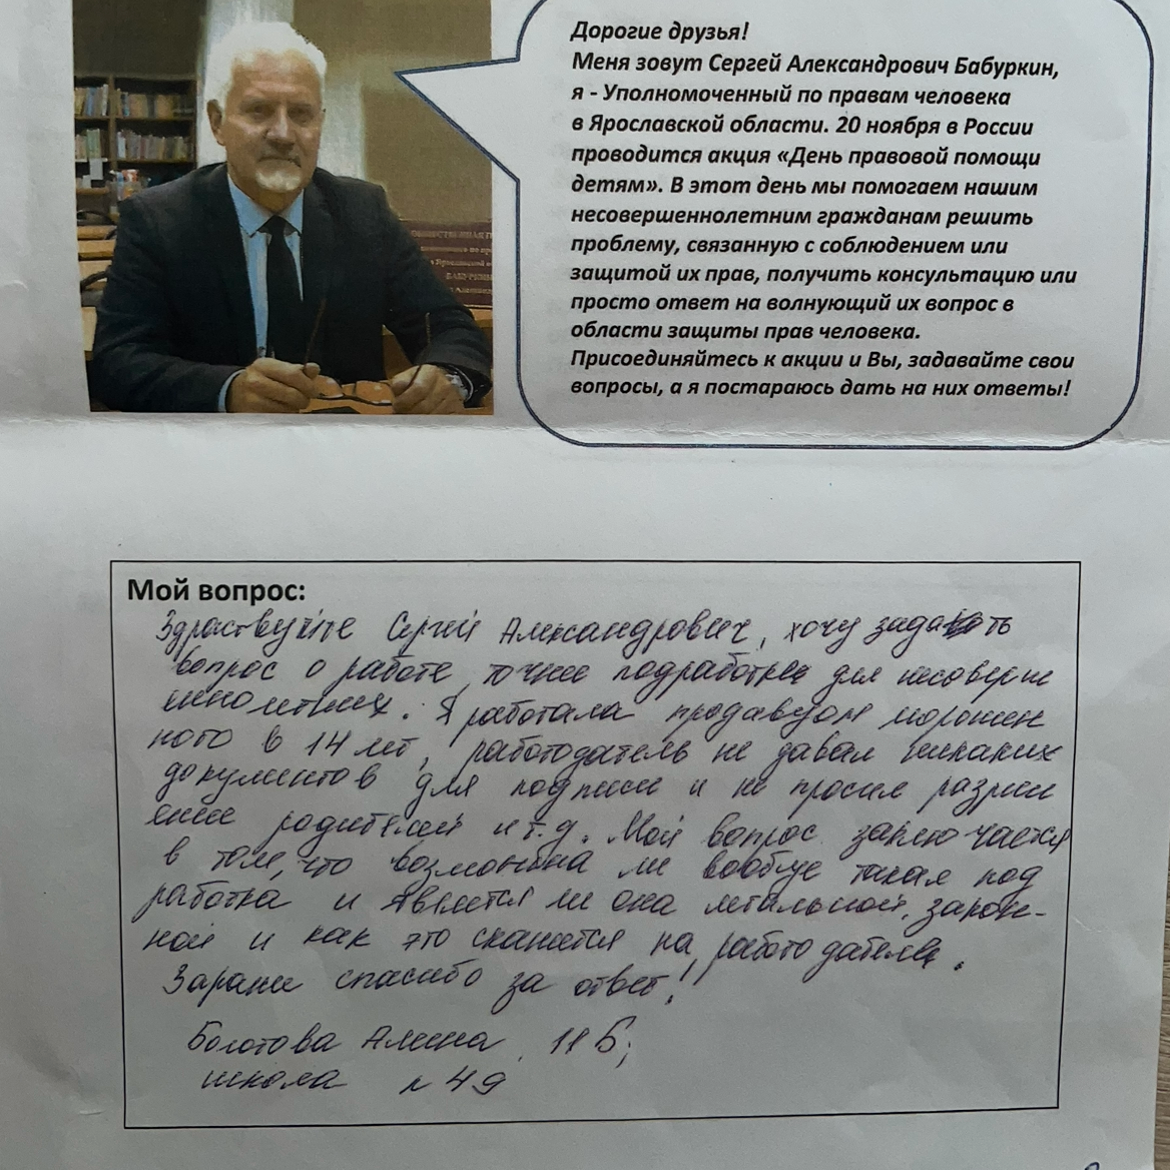 Дорогие друзья!
Меня зовут Сергей Александрович Бабуркин,
я - Уполномоченный по правам человека
в Ярославской области. 20 ноября в России
проводится акция «День правовой помощи
детям». В этот день мы помогаем нашим
несовершеннолетним гражданам решить
проблему, связанную с соблюдением или
защитой их прав, получить консультацию или
просто ответ на волнующий их вопрос в
области защиты прав человека.
Присоединяйтесь к акции и Вы, задавайте свои
вопросы, а я постараюсь дать на них ответы!
ОБЩЕСТВЕННАЯ
БАБУРКИН
Мой вопрос:
Здраствуйте Сергей Александрович, хочу задать
вопрос о работе, точнее подработке для несоверше
ннолетних. Я работала продавцом морожен
ного в 14 лет, работодатель не давал никаких
документов для подписи и не просил разреш
ение родителей и т.д. Мой вопрос заключается
в том, что возможна ли вообще такая под
работка и является ли она легальной, закон-
ной и как это скажется на работодателе.
Заранее спасибо за ответ!
Болотова Алина, 11 Б;
школа н 49